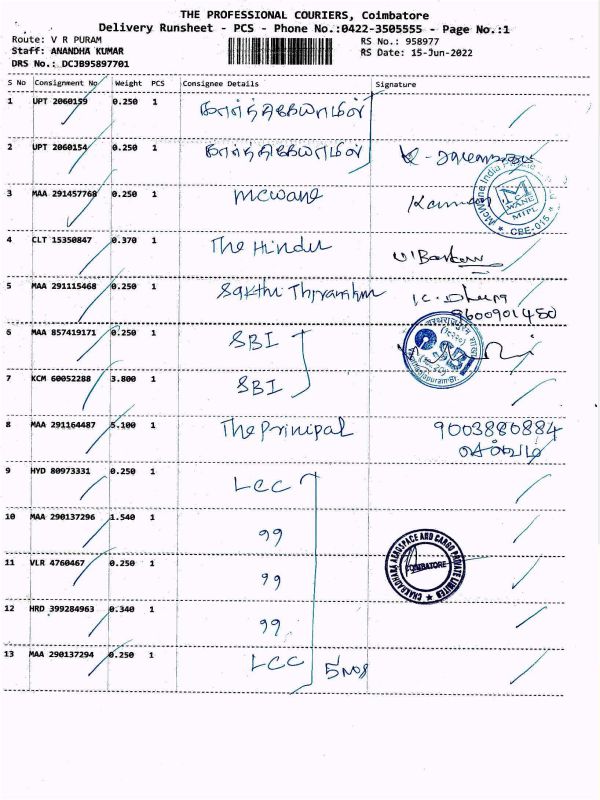 THE PROFESSIONAL COURIERS, Coimbatore
Delivery Runsheet - PCS - Phone No.:0422-3505555 - Page No.:1
Route: V R PURAM RS No.: 958977
Staff: ANANDHA KUMAR RS Date: 15-Jun-2022
DRS No.: DCJB95897701
S No Consignment No Weight PCS Consignee Details Signature
1 UPT 2060159 0.250 1
2 UPT 2060154 0.250 1
3 MAA 291457768 0.250 1 mcwane
McWane India
McWANE
MIPL
CBE-015
4 CLT 15350847 0.370 1 The Hindu
5 MAA 291115468 0.250 1 Sakthi
9600901480
6 MAA 857419171 0.250 1 SBI
SBI
7 KCM 60052288 3.800 1 SBI
8 MAA 291164487 5.100 1 The Prinipal 9003880884
செல்வம்
9 HYD 80973331 0.250 1 LCC
10 MAA 290137296 1.540 1 99
CHAKRADHARA AEROSPACE AND CARGO PRIVATE LIMITED
COIMBATORE
11 VLR 4760467 0.250 1 99
12 HRD 399284963 0.340 1 99
13 MAA 290137294 0.250 1 LCC 5 Nos